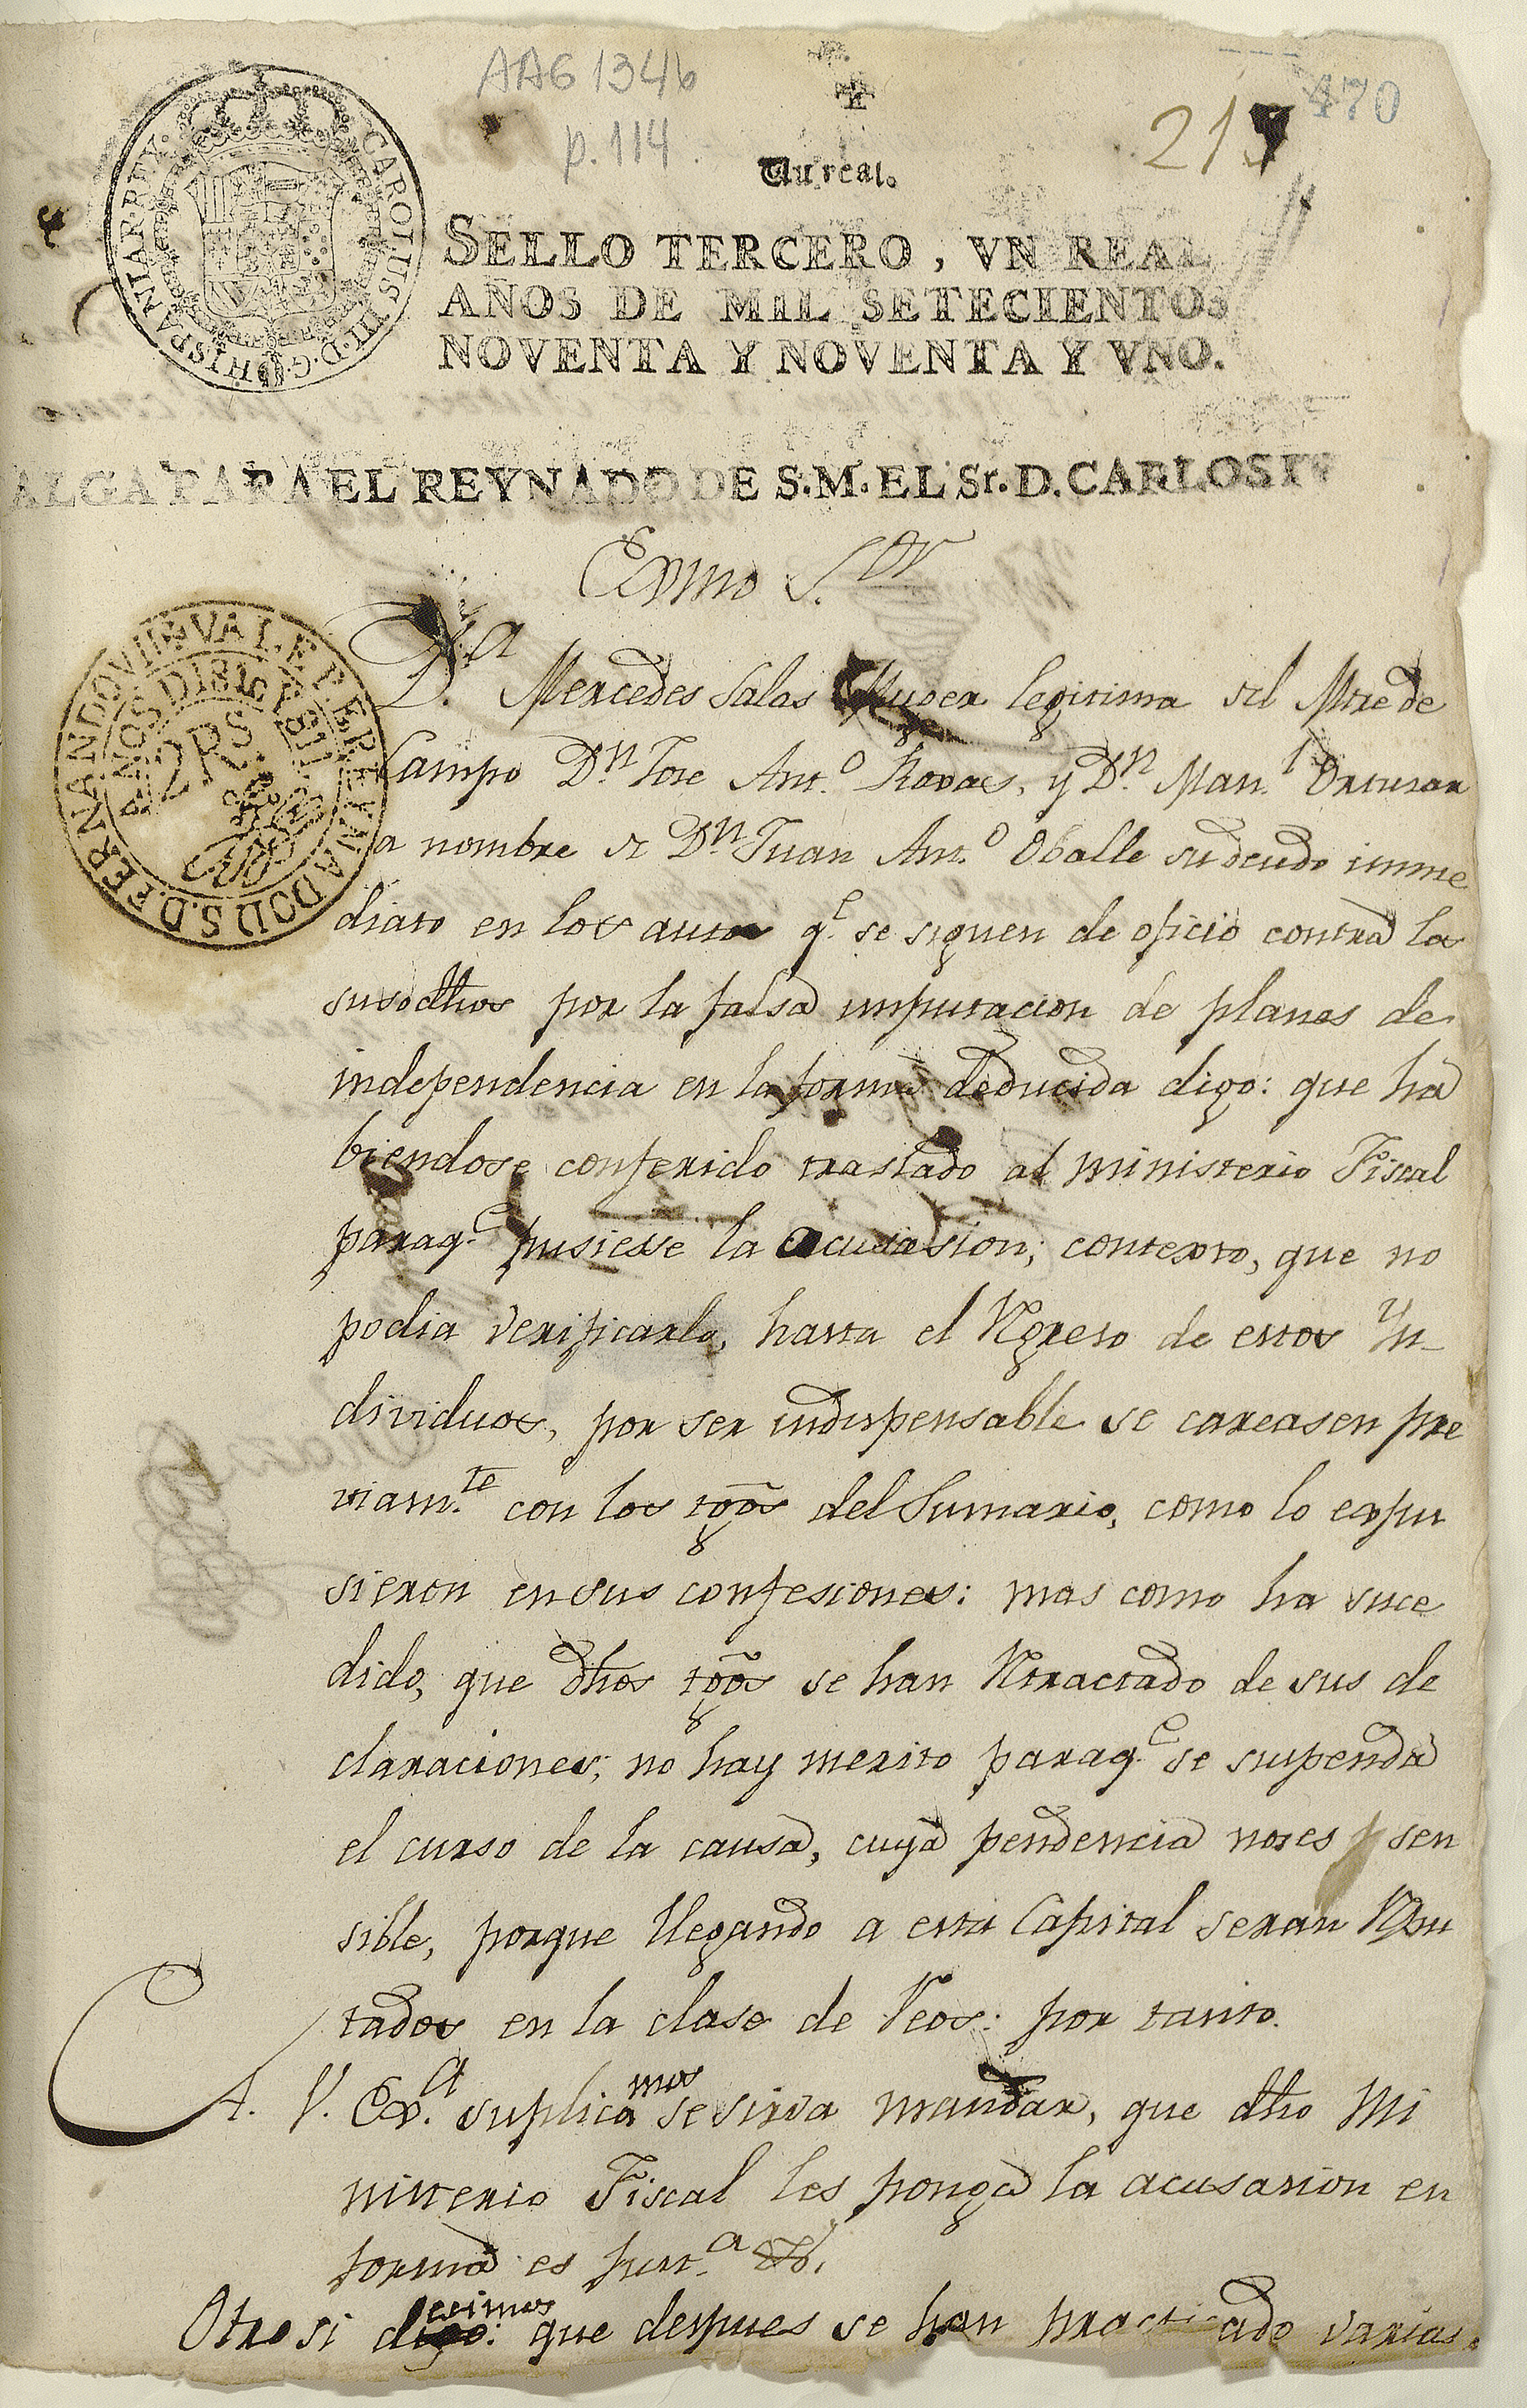 AAG 1346
p. 114
470
21
Un real.
SELLO TERCERO, VN REAL
AÑOS DE MIL SETECIENTOS
NOVENTA Y NOVENTA Y VNO.
CAROLUS III. D. G. HISPANIAR. REX.
ALGA PARA EL REYNADO DE S. M. EL Sr. D. CARLOS IV
Exmo S.or
VALE PARA EL REYNADO D S. D. FERNANDO VII
AÑOS D 1810
2 RS.
D.a Mercedes Salas Muger legitima del Mtre de
Campo D.n Jose Ant.o Roxas, y D.n Man.l Ortusar
a nombre de D.n Juan Ant.o Oballe su deudo imme
diato en los autos q.e se siguen de oficio contra los
susodhos por la falsa imputacion de planes de
independencia en la forma deducida digo: que ha
biendose conferido traslado al ministerio Fiscal
paraq.e pusiese la acusasion; contexto, que no
podia verificarlo, hasta el Rgreso de estos Yn-
dividuos, por ser indispensable se careasen pre
viam.te con los tgõs del Sumario, como lo expu
sieron en sus confesiones: mas como ha suce
dido, que dhos tgõs se han Rtractado de sus de
claraciones; no hay merito paraq.e se suspenda
el curso de la causa, cuya pendencia nos es sen
sible, porque llegando a esta Capital seran Rpu
tados en la clase de Reos: por tanto.
A. V. Ex.a suplicamos se sirva mandar, que dho Mi
nisterio Fiscal les ponga la acusasion en
forma es just.a &.
Otro si decimos: que despues se han practicado varias